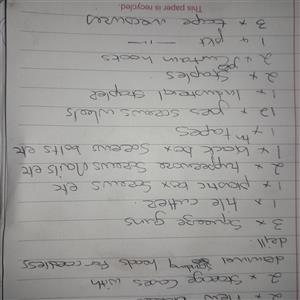 2 x New
2 x Storage Cases with
diamond heads for cordless
drill.
3 x Squeege guns
1 x tile cutter.
1 x plastic box Screws etc
2 x tupperware Screws Nails etc
1 x black box Screws bolts etc
1 x m tapes
12 x pcs screws wheels
1 x Industrial stapler
2 x Staples
2 x Curtain hooks
1 x 4 pkt — 11 —
3 x tape measures
This paper is recycled